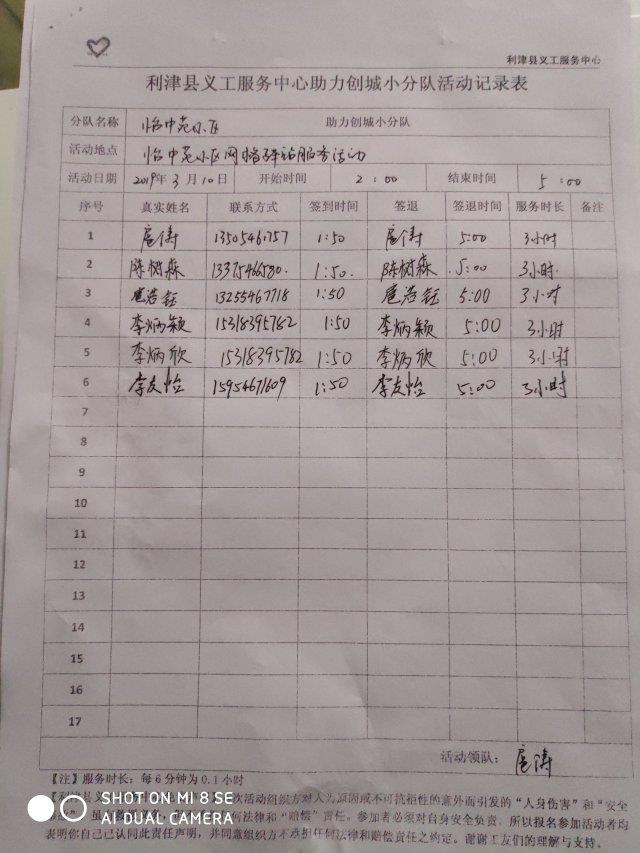 利津县义工服务中心
利津县义工服务中心助力创城小分队活动记录表
分队名称 怡中苑小区 助力创城小分队
活动地点 怡中苑小区网格驿站服务活动
活动日期 2019年3月10日 开始时间 2:00 结束时间 5:00
序号 真实姓名 联系方式 签到时间 签退 签退时间 服务时长 备注
1 扈涛 13505461757 1:50 扈涛 5:00 3小时
2 陈树森 13375466580. 1:50. 陈树森 5:00 3小时.
3 扈浩钰 13255467718 1:50 扈浩钰 5:00 3小时
4 李炳颖 15318395782 1:50 李炳颖 5:00 3小时
5 李炳欣 15318395782 1:50 李炳欣 5:00 3小时
6 李友怡 15954671609 1:50 李友怡 5:00 3小时
7
8
9
10
11
12
13
14
15
16
17
活动领队: 扈涛
【注】服务时长: 每6分钟为0.1小时
【利津县义工 次活动组织方对人为原因或不可抗拒性的意外而引发的“人身伤害”和“安全
何法律和“赔偿”责任。参加者必须对自身安全负责, 所以报名参加活动者均
表明你自己已认同此责任声明, 并同意组织方不承担任何法律和赔偿责任之约定。谢谢工友们的理解与支持。
SHOT ON MI 8 SE
AI DUAL CAMERA